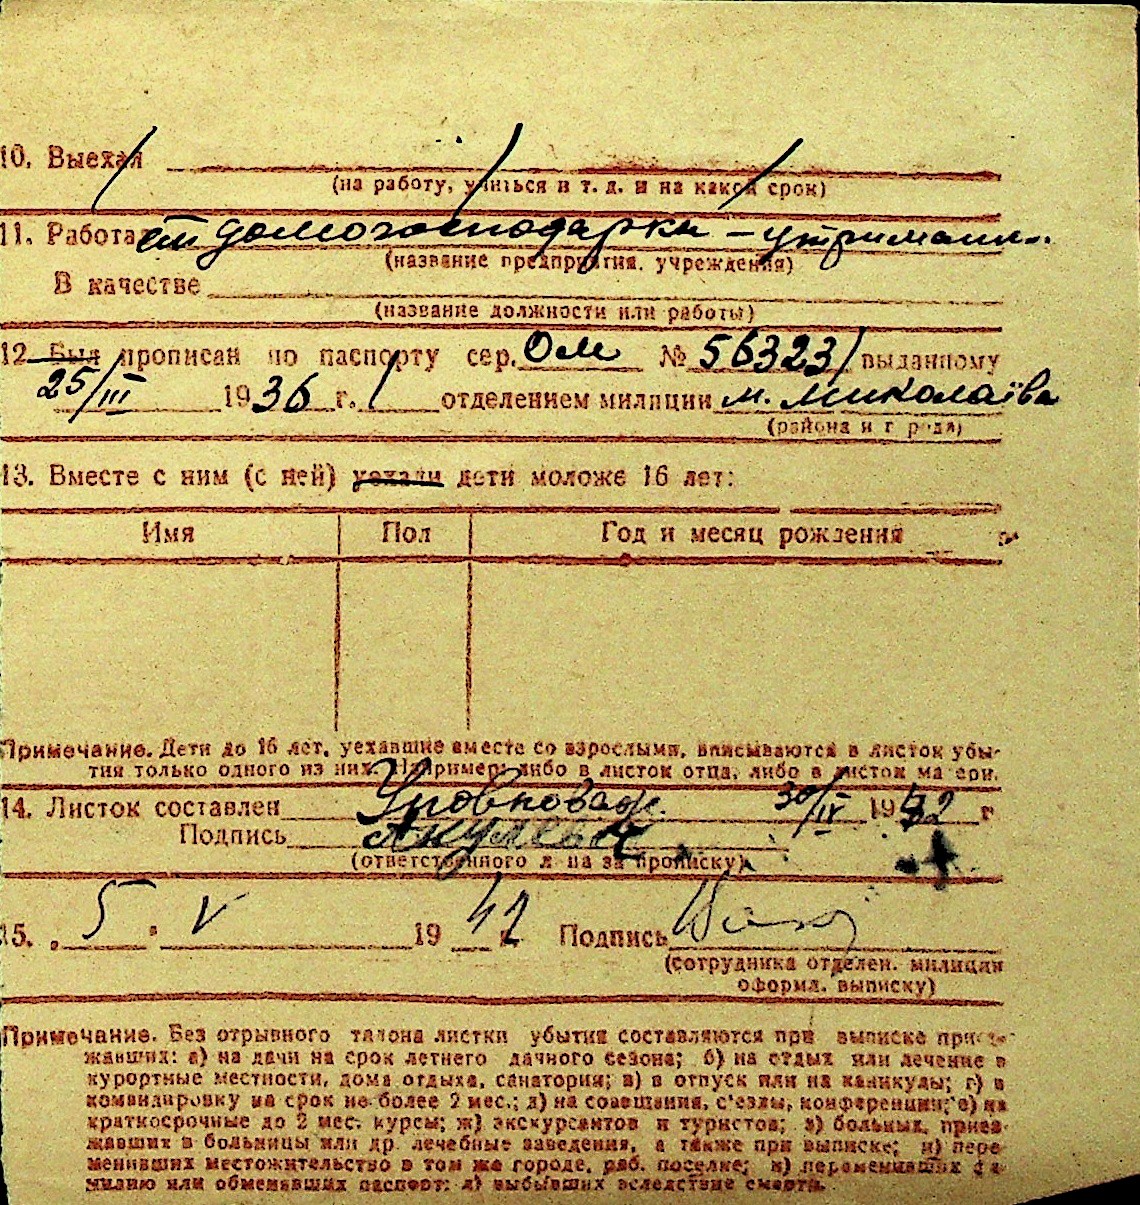 10. Выехал
(на работу, учиться и т. д. и на какой срок)
11. Работа домогосподарки – утриманн.
(название предприятия, учреждения)
В качестве
(название должности или работы)
12. Был прописан по паспорту сер. Ом № 56323 выданному
25/III 1936 г. отделением милиции м. Миколаїва
(района и города)
13. Вместе с ним (с ней) уехали дети моложе 16 лет:
Имя Пол Год и месяц рождения
Примечание. Дети до 16 лет, уехавшие вместе со взрослыми, вписываются в листок убы-
тия только одного из них. Например: либо в листок отца, либо в листок матери.
14. Листок составлен Уповноваж. 30/IV 1942 г
Подпись
(ответственного лица за прописку)
15. 5 V 1942 Подпись
(сотрудника отделен. милиции
оформл. выписку)
Примечание. Без отрывного талона листки убытия составляются при выписке приез-
жавших: а) на дачи на срок летнего дачного сезона; б) на отдых или лечение в
курортные местности, дома отдыха, санатории; в) в отпуск или на каникулы; г) в
командировку на срок не более 2 мес.; д) на совещания, с'езды, конференции; е) на
краткосрочные до 2 мес. курсы; ж) экскурсантов и туристов; з) больных, приез-
жавших в больницы или др. лечебные заведения, а также при выписке; и) пере-
менивших местожительство в том же городе, раб. поселке; к) переменивших фа-
милию или обменявших паспорт; л) выбывших вследствие смерти.